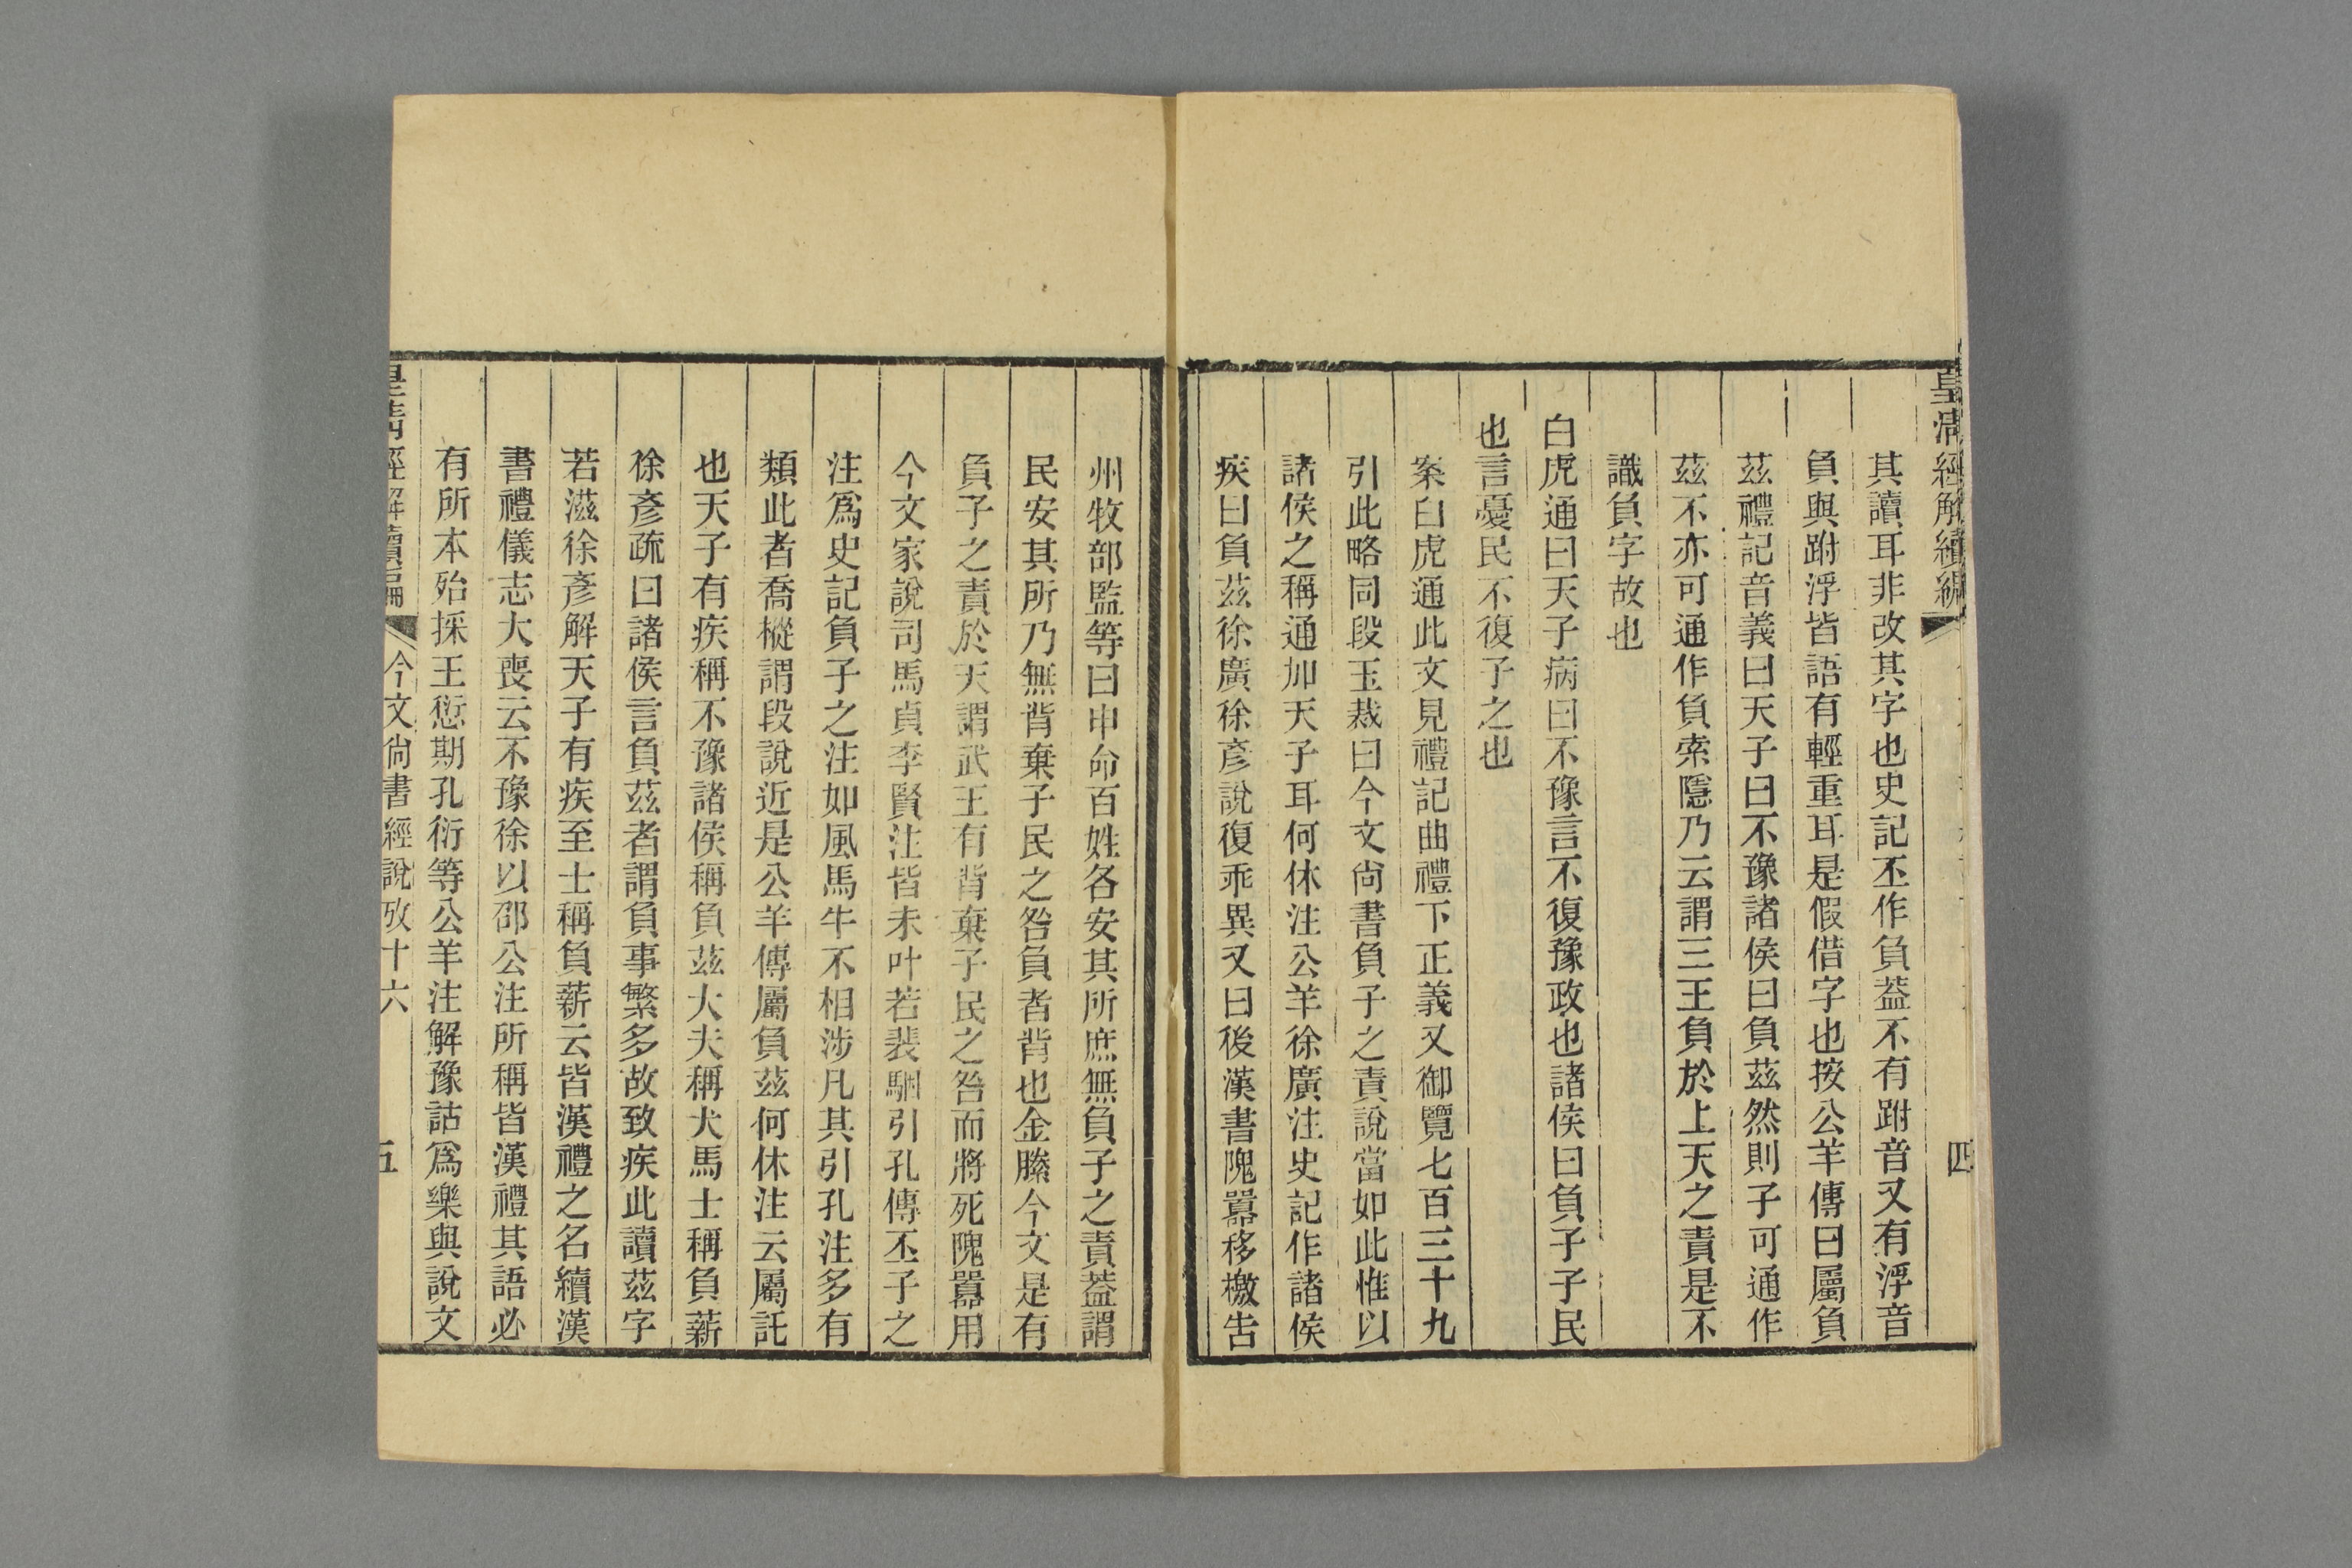 皇清經解續編
四
其讀耳非改其字也史記丕作負葢不有跗音又有浮音
負與跗浮皆語有輕重耳是假借字也按公羊傳曰屬負
茲禮記音義曰天子曰不豫諸侯曰負茲然則子可通作
茲不亦可通作負索隱乃云謂三王負於上天之責是不
識負字故也
白虎通曰天子病曰不豫言不復豫政也諸侯曰負子子民
也言憂民不復子之也
案白虎通此文見禮記曲禮下正義又御覽七百三十九
引此略同段玉裁曰今文尙書負子之責說當如此惟以
諸侯之稱通加天子耳何休注公羊徐廣注史記作諸侯
疾曰負茲徐廣徐彥說復乖異又曰後漢書隗囂移檄告
州牧部監等曰申命百姓各安其所庶無負子之責葢謂
民安其所乃無背棄子民之咎負者背也金縢今文是有
負子之責於天謂武王有背棄子民之咎而將死隗囂用
今文家說司馬貞李賢注皆未叶若裴駰引孔傳丕子之
注爲史記負子之注如風馬牛不相涉凡其引孔注多有
類此者喬樅謂段說近是公羊傳屬負茲何休注云屬託
也天子有疾稱不豫諸侯稱負茲大夫稱犬馬士稱負薪
徐彥疏曰諸侯言負茲者謂負事繁多故致疾此讀茲字
若滋徐彥解天子有疾至士稱負薪云皆漢禮之名續漢
書禮儀志大喪云不豫徐以邵公注所稱皆漢禮其語必
有所本殆採王愆期孔衍等公羊注解豫詁爲樂與說文
皇清經解續編
今文尙書經說攷十六
五